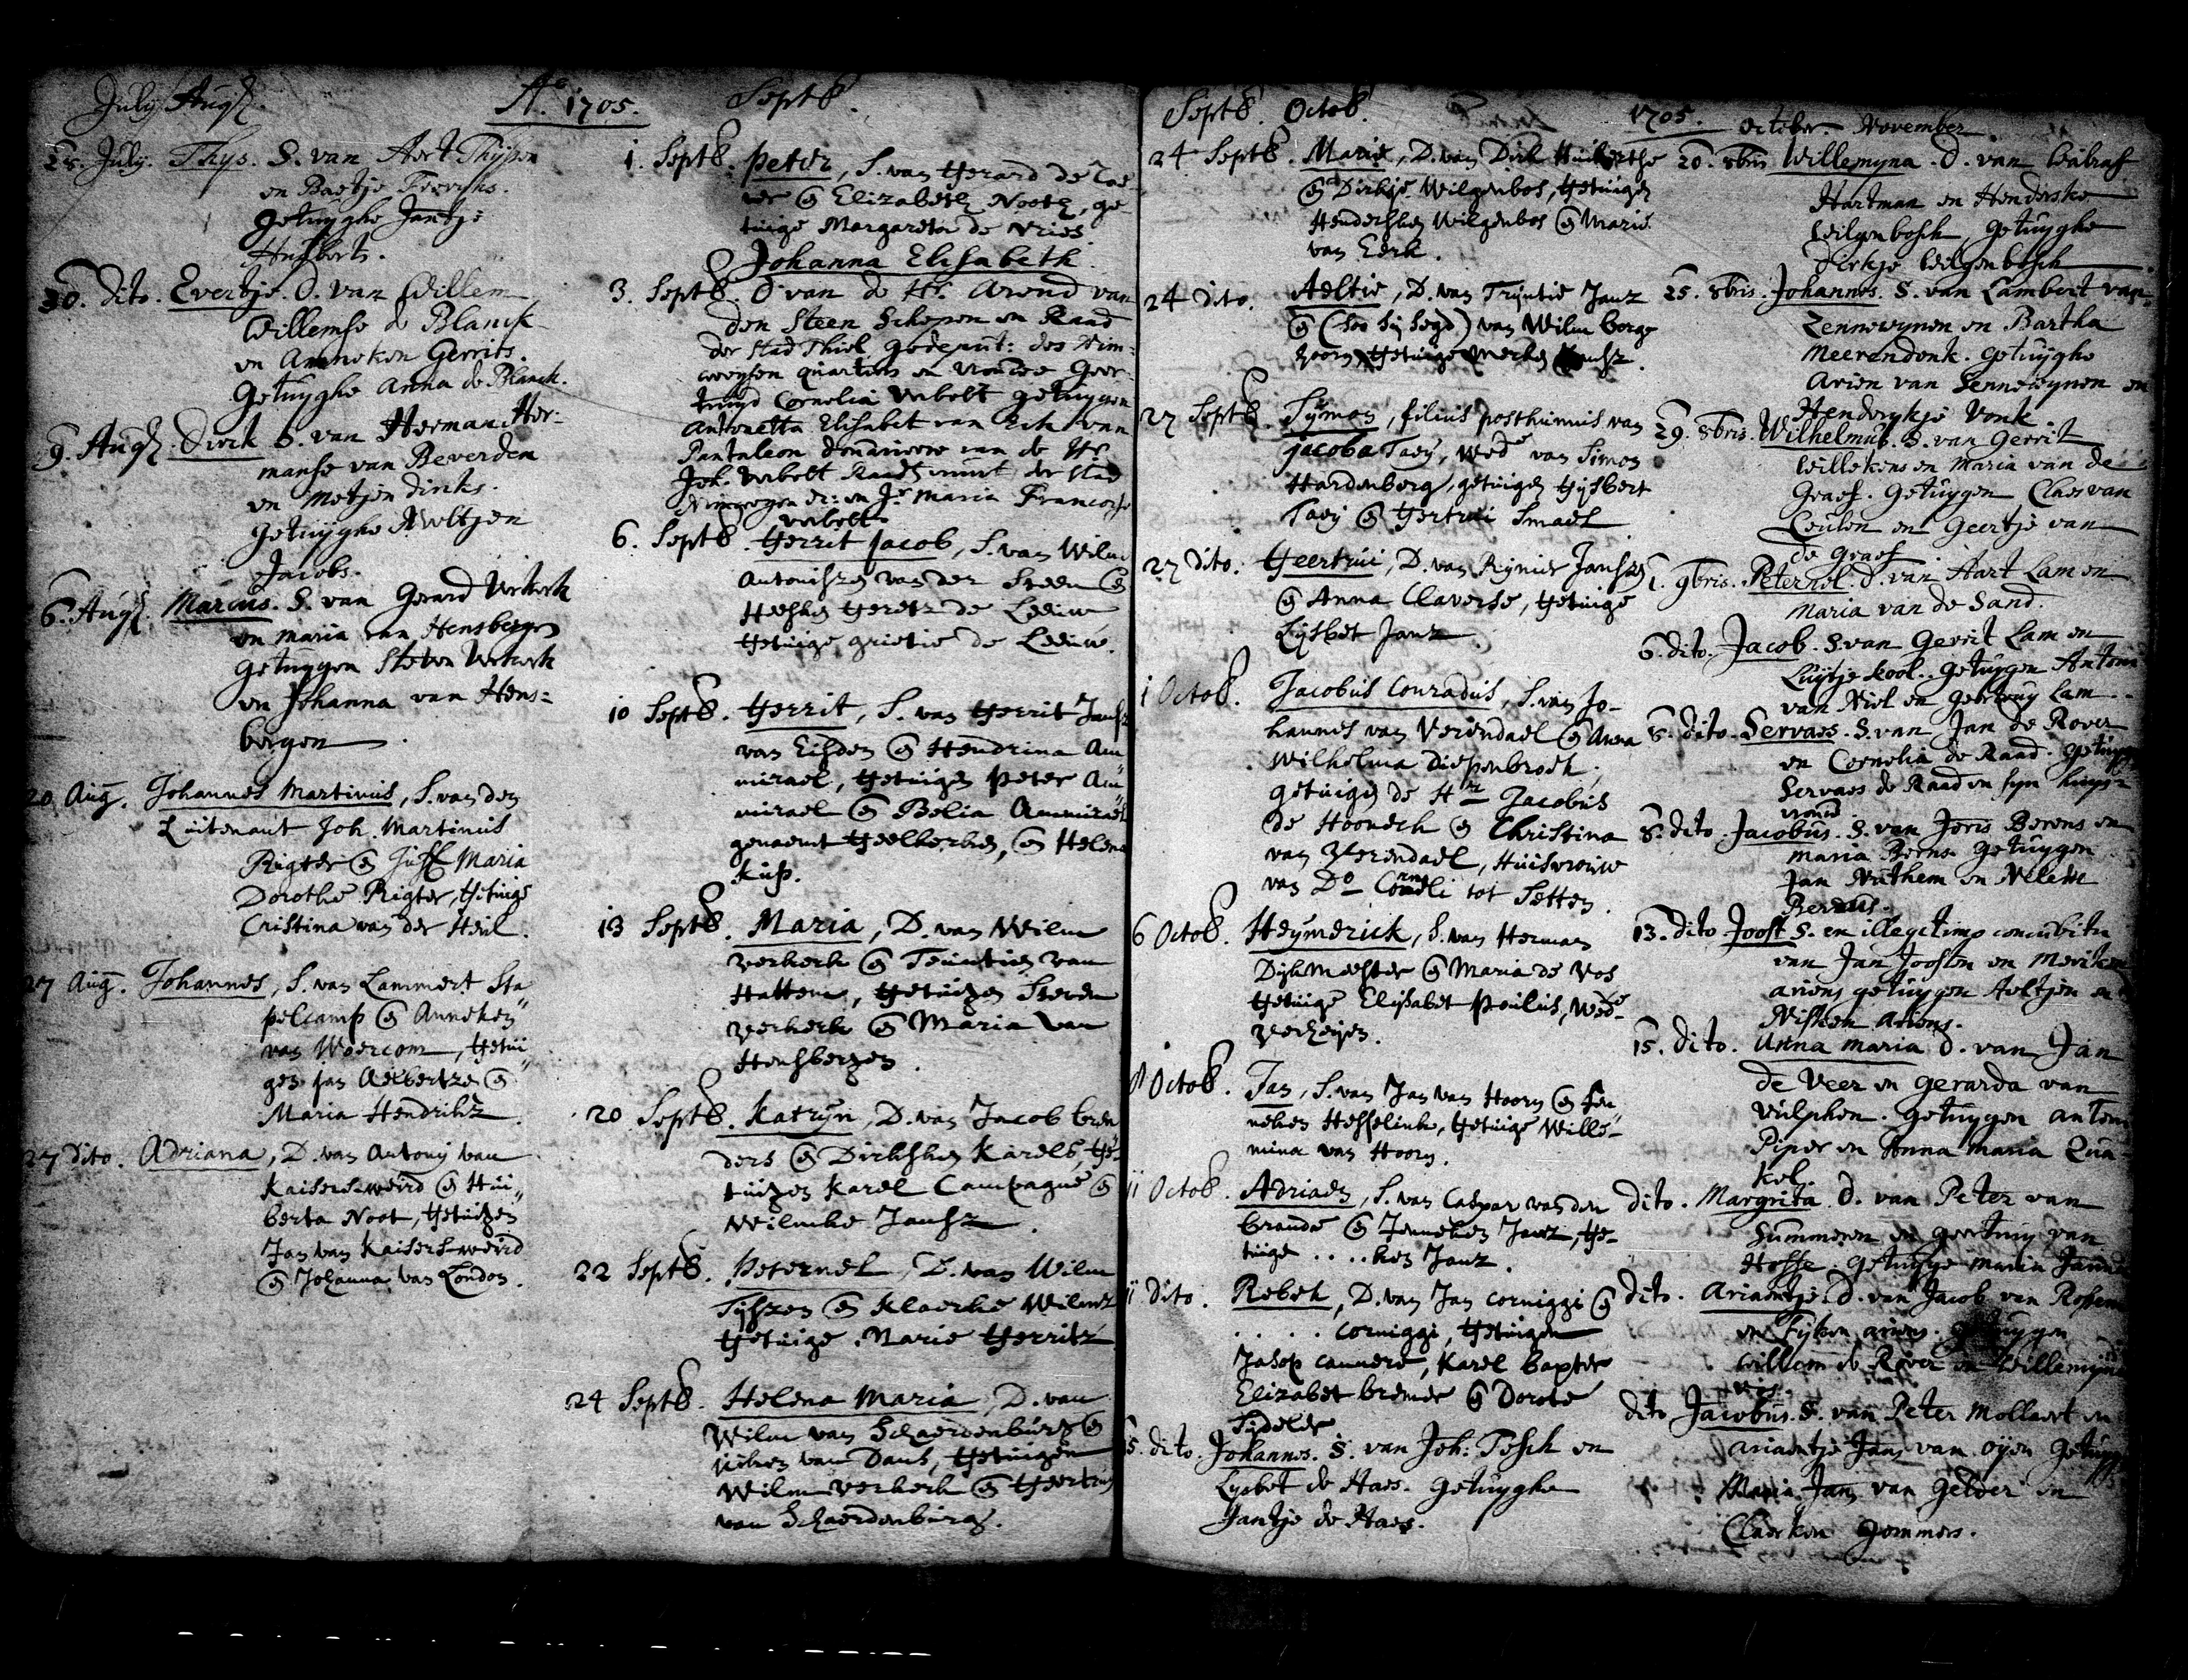 July Augs
Ao. 1705.
28. July. Thys. S. van Aert Thysen
en Baetje Frerichs.
getuyghe Jantje
Huijberts.
30. dito. Evertje. D. van Willem
Willemse de Blanck
en Anneken Gerrits.
Getuyghe Anna de Blanck.
9. Augs. Dirck S. van Herman Her-
manse van Beverden
en Metjen dirks.
getuyghe Aeltjen
Jacobs.
6. Augs. Marcus. S. van Gerard Verkerk
en Maria van Hensbergen
getuygen Steven Verkerk
en Johanna van Hens=
bergen.
20 Aug. Johannes Martinus, S. van den
Luitenant Joh. Martinus
Rigter en Juff. Maria
Dorothe Rigter, Getuige
Cristina van der Heul.
27 Aug. Johannes, S. van Lammert Sta
pelcamp en Anneken
van Woercom, Getui
gen Jan Aelbertze en
Maria Hendrikz
27 dito. Adriana, D. van Antony van
Kaiserswerd en Hui
berta Noot, Getuigen
Jan van Kaiserswerd
en Johanna van London.
Septb.
1. Septb. Peter, S. van Gerard de
en Elizabeth Nooth, ge-
tuige Margareta de Vries.
Johanna Elisabeth
3. Septb. D van de Hr. Arend van
den Steen Schepen en Raad
der stad Thiel gedeput: des Nim=
weegsen quartiers en vrouwe Geer
truyd Cornelia Verbolt getuygen
Antonetta Elisabet van Eck van
Pantaleon douariere van de Hr
Joh. Verbolt Raadt der stad
Nimwegen en Jr Maria Francoise
Verbolt
6. Septb. Gerrit Jacob, S. van Wilm
Antonisze van der Steen en
Geretz de Leeuw
Getuige grietie de Leeuw.
10 Septb. Gerrit, S. van Gerrit Jansz
van Eisden en Hendrina Am
mirael, Getuigen Peter Am
mirael en Belia Ammirael
genaemt Geelkerken, en Helena
Kuss.
13 Septb. Maria, D. van Wilm
verkerk en Teuntien van
Hattem, Getuigen Steven
verkerk en Maria van
Hensbergen.
20 Septb. Katryn, D. van Jacob
ders en Dirksken Karels, Ge-
tuigen Karel Campagne en
Wilmke Jansz.
22 Septb. Peternel, D. van Wilm
Tijszen en Klaerke Wilmz
Getuige Marie Gerritz
24 Septb. Helena Maria, D. van
Wilm van Schaerdenburg en
van Dans, Getuigen
Wilm verkerk en Geertruy
van Schaerdenburg.
Septb. Octob.
24 Septb. Marie, D. van Dirk Huibertse
en Dirkje Wilgenbos, Getuigen
Hendersken Wilgenbos en Marie
van Eerk.
24 dito. Aeltie, D. van Tryntie Janz
en (soo sij segd) van Wilm berge
Getuige Merke
27 Septb. Symon, filius posthumus van
Jacoba Taey, Wede van Simon
Hardenberg, getuigen Gijsbert
Taey en Gertrui Smael
27 dito. Geertrui, D. van Rynier Janszen
en Anna Claverse, Getuige
Lijsbet Janz
1 Octob. Jacobus Conradus, S. van Jo-
hannes van Verendael en Anna
Wilhelma Diepenbroek,
getuigen de Hr Jacobus
de Hoonech en Christina
van Verendael, Huisvrouwe
van Do Cornelli tot Setten.
6 Octob. Heymerick, S. van Herman
Dijkmeester en Maria de Vos
Getuige Elijsabet Paulus, Wede
Verheijen.
8 Octob. Jan, S. van Jan van Hoorn en Jen
neken Hesselink, Getuige Wille-
mina van Hoorn.
11 Octob. Adriaen, S. van Caspar van den
brande en Jenneken Janz, Ge-
tuige ....ken Janz.
11 dito. Rebek, D. van Jan Corniggi en
..... Corniggi, Getuigen
Jasop cammere, Karel baxter
Elizabet bremer en Dorote
Fideler
15. dito. Johannes. S. van Joh: Tesch en
Lysbet de Haes. Getuyghe
Jantje de Haes.
1705.
October. November.
20. 8bris Willemyna. D. van
Hartman en Henderske
Wilgenbosch, getuyghe
Derkje Wilgenbosch
25. 8bris. Johannes. S. van Lambert van
Zennewynen en Bartha
Meerendonk. getuyghe
Arien van Sennewynen en
Henderykje Vonk
29. 8bris. Wilhelmus. S. van Gerrit
Willekens en Maria van de
Graef. Getuygen Claes van
Ceulen en Geertje van
de Graef
1. 9bris. Peternel. D. van Aart Lam en
Maria van de Sand.
6. dito. Jacob. S. van Gerrit Lam en
Luytje Kool. getuygen Antoni
van Niel en geertruy Lam.
8. dito. Servaes. S. van Jan de Rover
en Cornelia de Raad. getuyge
Servaes de Raad en syn huys=
vrouw
8. dito. Jacobus. S. van Joris Berens en
Maria Berns. Getuygen
Jan Nuthem en Neleke
Berens.
13. dito Joost S. en illegitimo concubitu
van Jan Joosten en Meriken
ariens getuygen Aeltjen en
Nisken Ariens.
15. dito. Anna Maria D. van Jan
de Veer en Gerarda van
Vulphen. getuygen Antoni
Piper en Anna Maria Qua
kel.
dito. Margrita D. van Peter van
Summeren en Geertruy van
Hosse. getuyge Maria
dito. Ariaentje. D. van Jacob van Rossem
en Fyken ariens. getuygen
Willem de Rover en Willemyne
dito Jacobus. S. van Peter Mollaert en
Ariaentje Jans van Oyen getuyge
Maria Jans van Gelder en
Claerken Gommers.